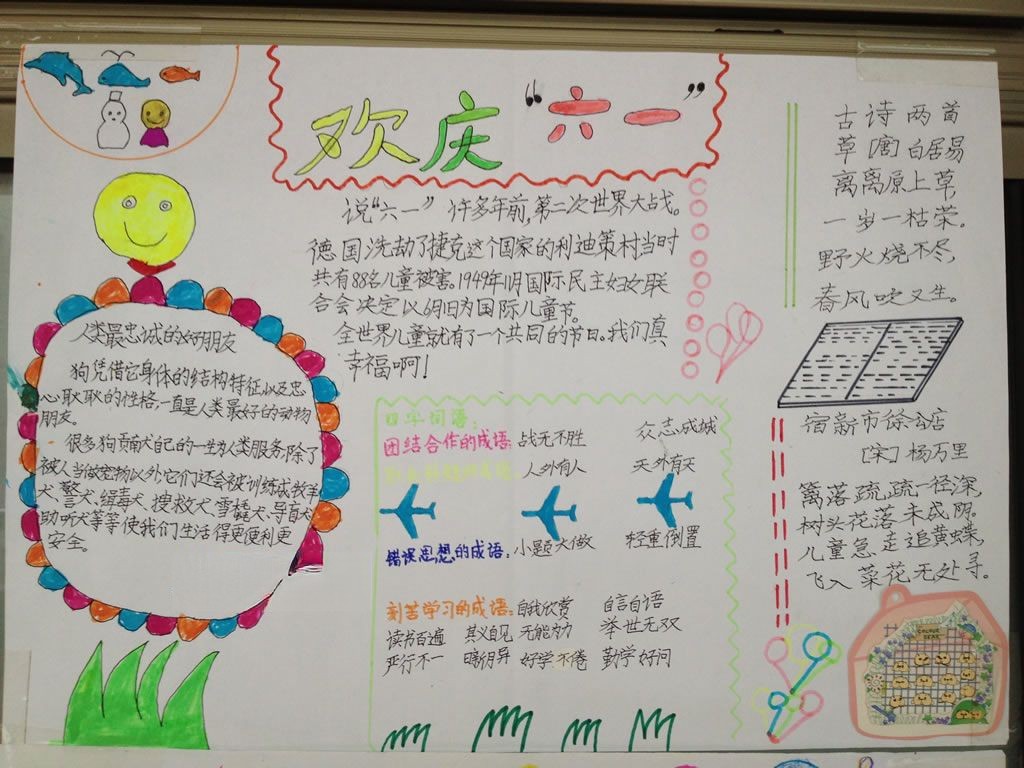 欢庆“六一”
说“六一” 许多年前,第二次世界大战。
德国洗劫了捷克这个国家的利迪策村,当时
共有88名儿童被害。1949年11月国际民主妇女联
合会决定以6月1日为国际儿童节。
全世界儿童就有了一个共同的节日。我们真
幸福啊!
人类最忠诚的好朋友
狗凭借它身体的结构特征,以及忠
心耿耿的性格,一直是人类最好的动物
朋友。
很多狗贡献自己的一生为人类服务,除了
被人当做宠物以外,它们还会被训练成牧羊
犬、警犬、缉毒犬、搜救犬、雪橇犬、导盲犬
助听犬等等使我们生活得更便利更
安全。
四字词语:
团结合作的成语: 战无不胜 众志成城
人外有人 天外有天
错误思想的成语: 小题大做 轻重倒置
刻苦学习的成语: 自我欣赏 自言自语
读书百遍 其义自见 无能为力 举世无双
严行不一 好学不倦 勤学好问
古诗两首
草 [唐] 白居易
离离原上草,
一岁一枯荣。
野火烧不尽,
春风吹又生。
宿新市徐公店
[宋] 杨万里
篱落疏疏一径深,
树头花落未成阴。
儿童急走追黄蝶,
飞入菜花无处寻。